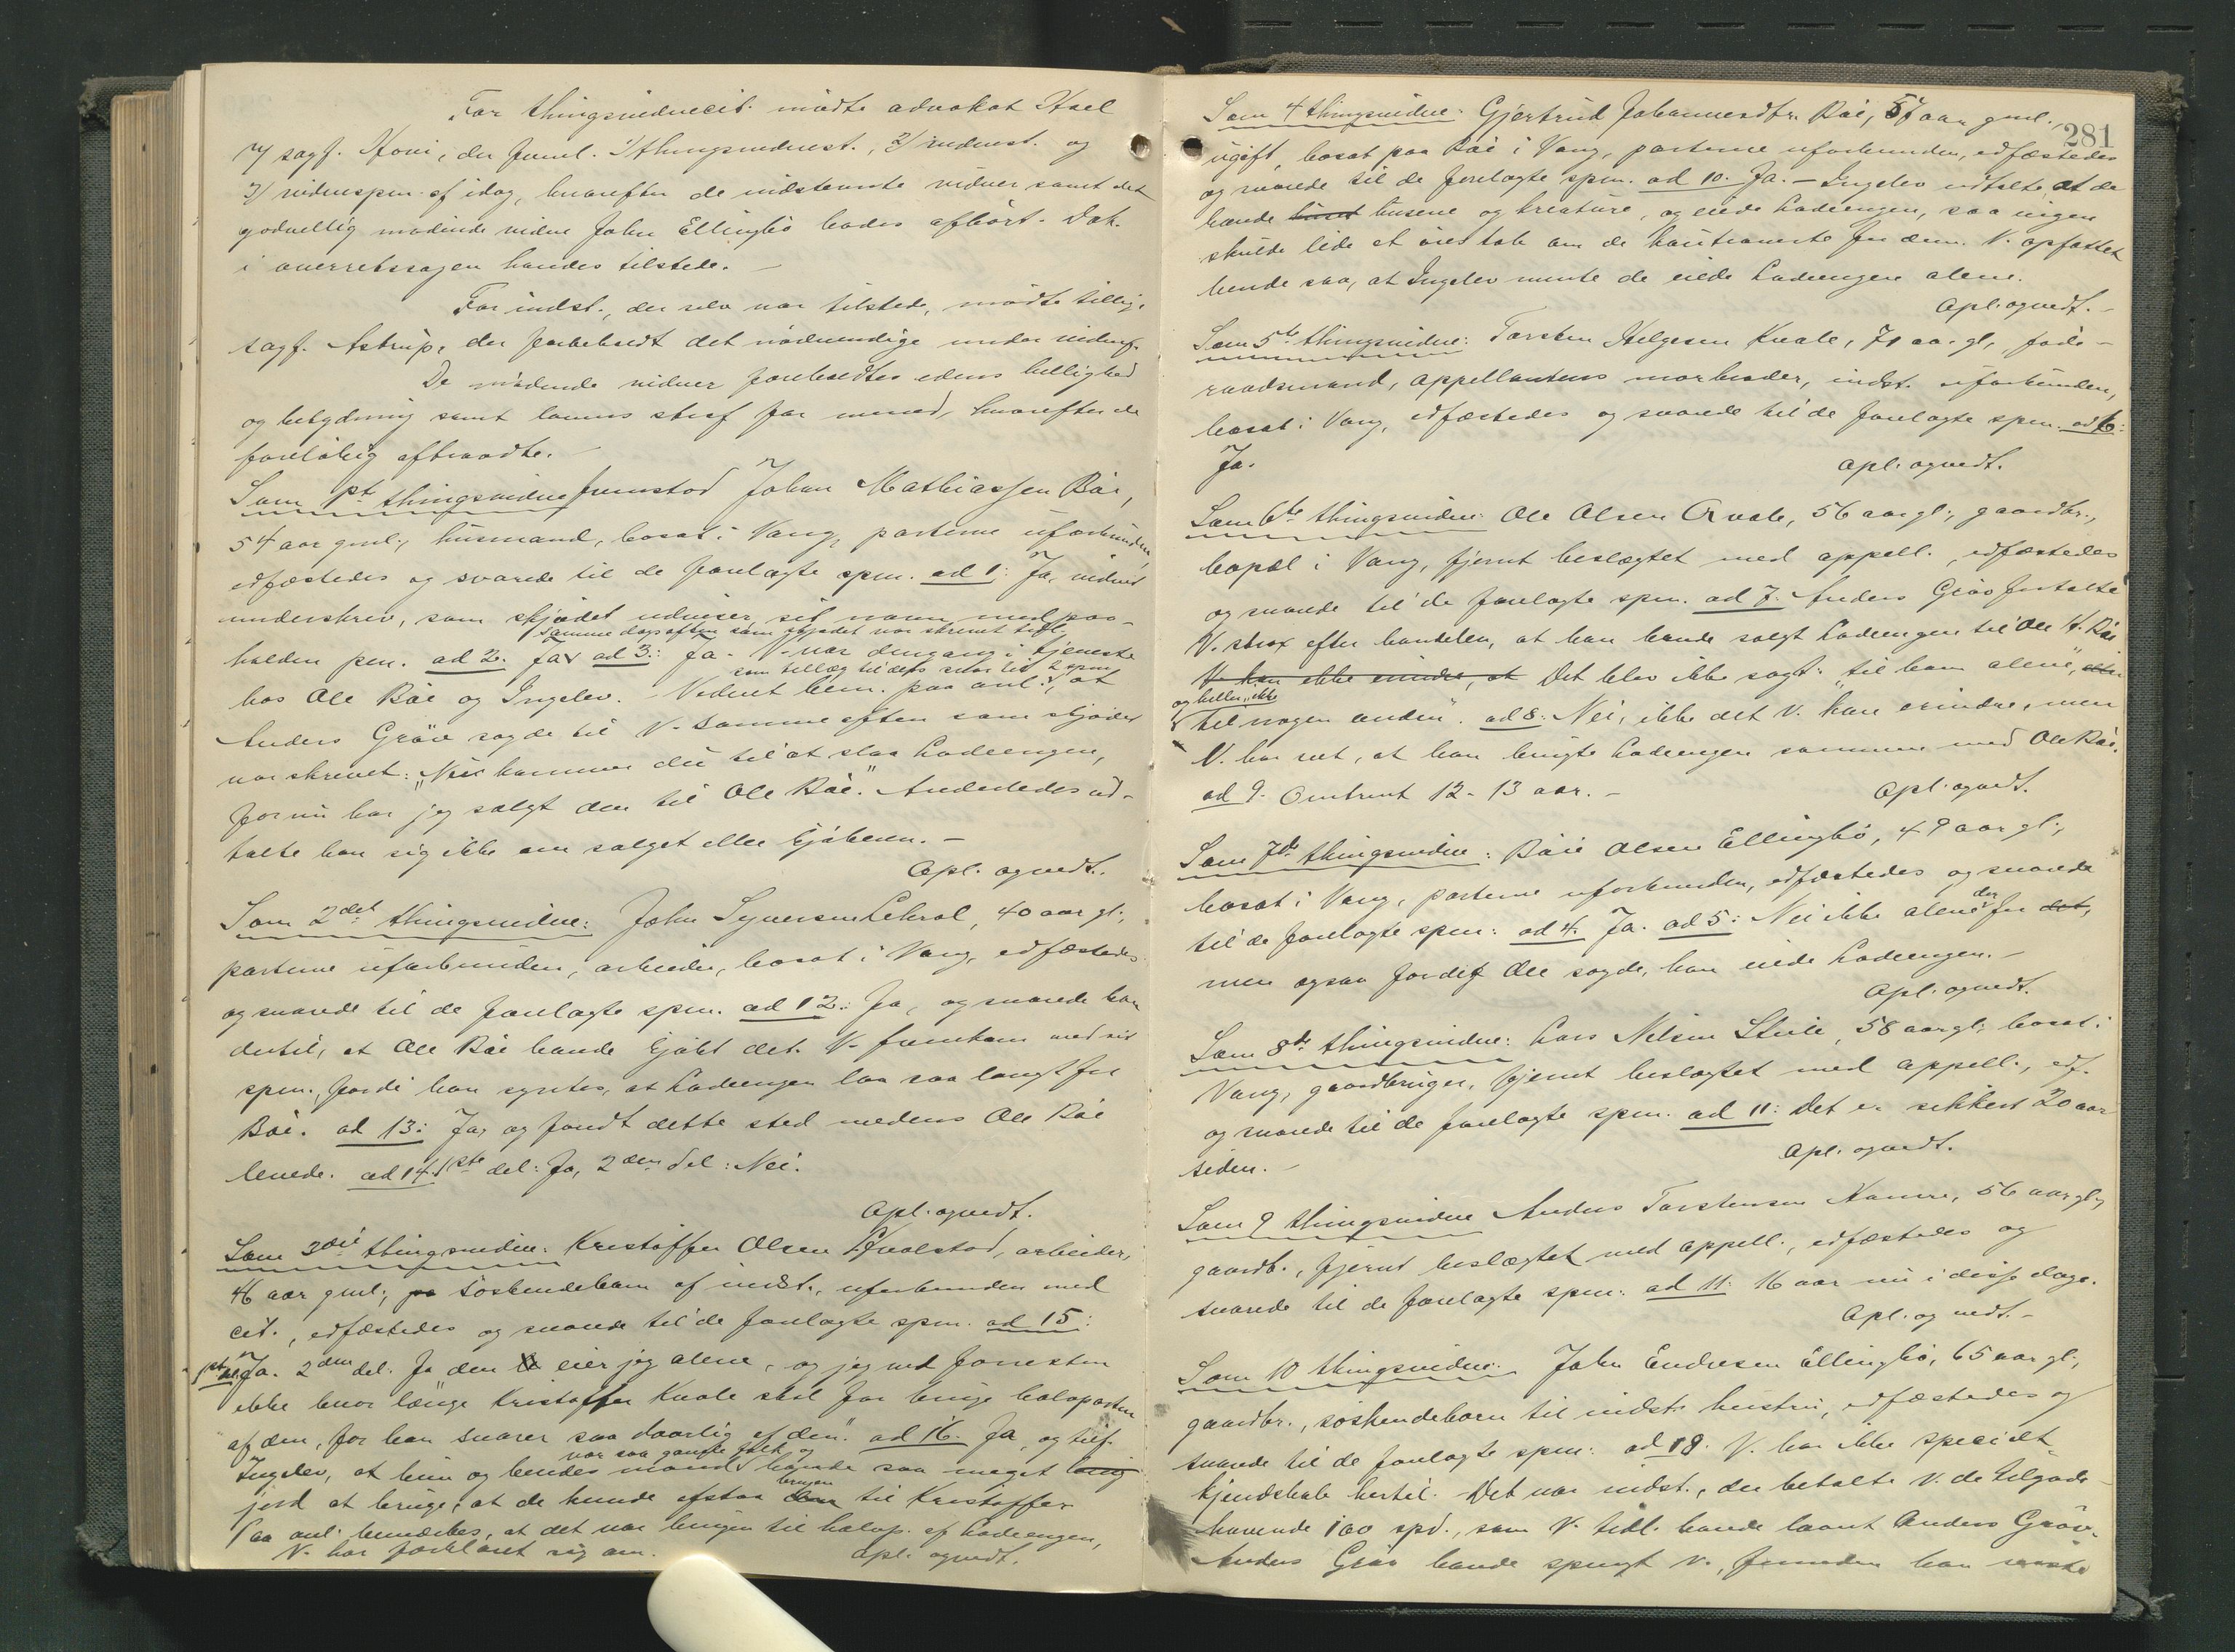 For thingsvidnecit. mødte advokat Hael
v/ sagf. Hovi, der freml. 1/ thingsvidnest., 2/ vidnest. og
3/ vidnespm. af idag, hvorefter de indstevnte vidner samt det
godvillig mødende vidne John Ellingbö bades afhört. Dok.
i overretssagen havdes tilstede. —
For indst., der selv var tilstede, mødte tillige
sagf. Astrup, der forbeholdt det nödvendige under vidnef.
De mødende vidner foreholdtes edens hellighed
og betydning samt lovens straf for mened, hvorefter de
foreløbig aftraadte. —
Som 1st thingsvidne fremstod Johan Mathiassen Böe,
54 aar gml., husmand, bosat i Vang, parterne uforbunden,
edfæstedes og svarede til de forelagte spm. ad 1: Ja, vidnet
underskrev, som skjødet udviser, sit navn med paa-
holden pen. ad 2. Ja ad 3: Ja. V. var dengang i tjeneste
samme dags aften som skjødet var skrevet tidl.
hos Ole Böe og Ingelev. Vidnet bem. paa anl., at
som tillæg til dets svar til 2 spm.
Anders Gröv sagde til V. samme aften som skjødet
var skrevet: "Nei kommer du til at slaa Ladeengen,
for nu har jeg solgt den til Ole Böe." Anderledes ud-
talte han sig ikke om salget eller kjöberen. —
Opl. ogvedt.
Som 2det thingsvidne: John Syversen Leheol, 40 aar gl.,
parterne uforbunden, arbeider, bosat i Vang, edfæstedes
og svarede til de forelagte spm. ad 12: Ja, og svarede han
dertil, at Ole Böe havde kjöbt det. V. fremkom med sit
spm., fordi han syntes, at Ladeengen laa saa langt fra
Böe. ad 13: Ja, og fandt dette sted medens Ole Böe
levede. ad 14. 1ste del: Ja, 2den del: Nei.
Opl. ogvedt.
Som 3die thingsvidne: Kristoffer Olsen Kvalstad, arbeider,
46 aar gml., söskendebarn af indst., uforbunden med
cit., edfæstedes og svarede til de forelagte spm. ad 15:
1ste del Ja. 2den del. Ja den eier jeg alene, og jeg ved forresten
ikke hvor længe Kristoffer Kvale skal faa bruge halvparten
af den, for han svarer saa daarlig af den." ad 16. Ja, og tilf.
var saa gamle folk og
Ingelev, at hun og hendes mand havde saa meget
jord at bruge, at de kunde afstaa brugen til Kristoffer
Paa anl. bemærkes, at det var brugen til halvp. af Ladeengen,
V. har forklaret sig om. Opl. ogvedt.
281
Som 4 thingsvidne: Gjertrud Johannesdtr. Böe, 57 aar gml.,
ugift, bosat paa Böe i Vang, parterne uforbunden, edfæstedes
og svarede til de forelagte spm. ad 10. Ja. — Ingelev udtalte at de
havde husene og kreature, og eiede Ladeengen, saa ingen
skulde lide et öres tab om de kautionerte for dem. V. opfattet
hende saa, at Ingelev mente de eiede Ladeengen alene.
Opl. ogvedt. —
Som 5te thingsvidne: Torsten Helgesen Kvale, 71 aar gl., føde-
raadsmand, appellantens morbroder, indst. uforbunden,
bosat i Vang, edfæstedes og svarede til de forelagte spm. ad 6:
Ja. Opl. ogvedt.
Som 6te thingsvidne: Ole Olsen Qvale, 56 aar gl., gaardbr.,
bopæl i Vang, fjernt beslægtet med appell., edfæstedes
og svarede til de forelagte spm. ad 7. Anders Gröv fortalte
V. strax efter handelen, at han havde solgt Ladeengen til Ole H. Böe
V. kan ikke mindes, at Det blev ikke sagt: "til ham alene",
og heller ikke
"til nogen anden". ad 8: Nei, ikke det V. kan erindre, men
V. har set, at han brugte Ladeengen sammen med Ole Böe.
ad 9. Omtrent 12-13 aar. — Opl. ogvedt.
Som 7de thingsvidne: Böie Olsen Ellingbö, 49 aar gl.,
bosat i Vang, parterne uforbunden, edfæstedes og svarede
til de forelagte spm: ad 4. Ja. ad 5: Nei ikke alene derfor det,
men ogsaa fordi Ole sagde, han eiede Ladeengen. —
Opl. ogvedt.
Som 8de thingsvidne: Lars Nilsen Steile, 58 aar gl. bosat i
Vang, gaardbruger, fjernt beslægtet med appell., edf.
og svarede til de forelagte spm. ad 11: Det er sikkert 20 aar
siden. — Opl. ogvedt.
Som 9 thingsvidne Anders Torstensen Hamre, 56 aar gl.,
gaardb., fjernt beslægtet med appell., edfæstedes og
svarede til de forelagte spm: ad 11: 16 aar nu i disse dage.
Opl. og vedt. —
Som 10 thingsvidne: John Endresen Ellingbö, 65 aar gl.,
gaardbr., söskendebarn til indst. hustru, edfæstedes og
svarede til de forelagte spm: ad 18. V. har ikke specielt
kjendskab hertil. Det var indst., der betalte V. de tilgode-
havende 100 spd., som V. tidl. havde laant Anders Gröv.
Anders Gröv havde spurgt V., forinden han